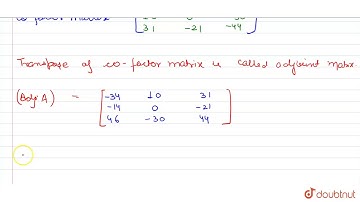 31 -21 -44
Transpose of co-factor matrix is called adjoint matrix
(Adj. A) = [ -34 10 31
-14 0 -21
46 -30 44 ]
doubtnut